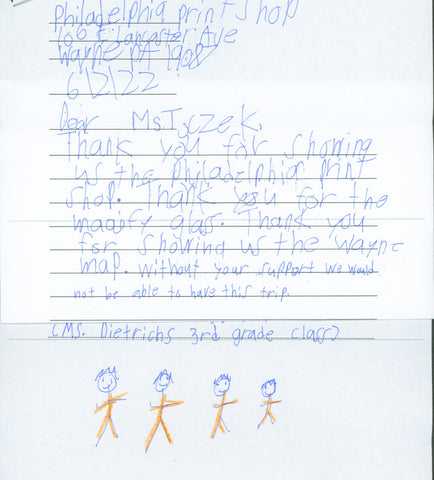 Philadelphia print shop
106 E Lancaster Ave
Wayne PA 1908
6/2/22
Dear Ms. Tyczek,
Thank you for showing
us the Philadelphia print
shop. Thank you for the
magify glass. Thank you
for showing us the Wayne
map. without your support we would
not be able to have this trip.
(Ms. Dietrichs 3rd grade class)